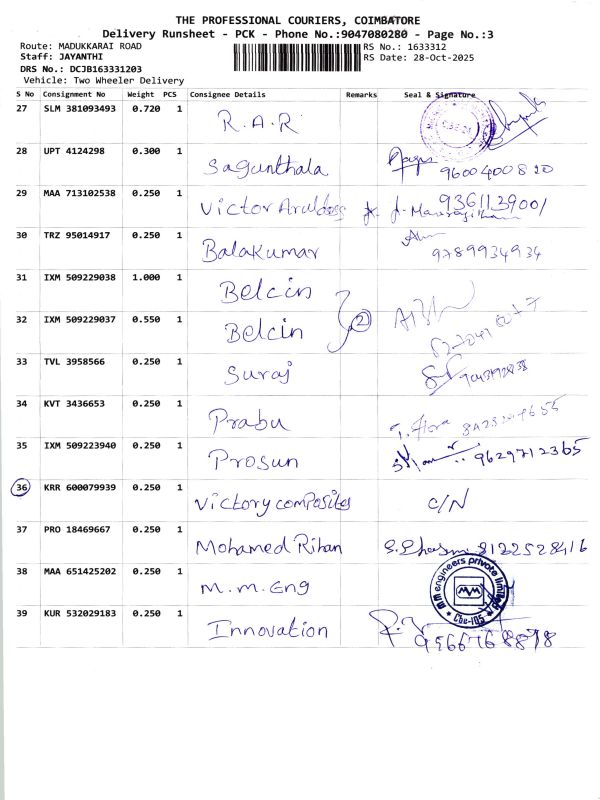 THE PROFESSIONAL COURIERS, COIMBATORE
Delivery Runsheet - PCK - Phone No.:9047080280 - Page No.:3
Route: MADUKKARAI ROAD
RS No.: 1633312
Staff: JAYANTHI
RS Date: 28-Oct-2025
DRS No.: DCJB163331203
Vehicle: Two Wheeler Delivery
S No Consignment No Weight PCS Consignee Details Remarks Seal & Signature
27 SLM 381093493 0.720 1 R.A.R
28 UPT 4124298 0.300 1 Sagunthala 9600400820
29 MAA 713102538 0.250 1 Victor 9361139001
30 TRZ 95014917 0.250 1 Balakumar 9789934934
31 IXM 509229038 1.000 1 Belcin
32 IXM 509229037 0.550 1 Belcin 2
33 TVL 3958566 0.250 1 Suraj
34 KVT 3436653 0.250 1 Prabu
35 IXM 509223940 0.250 1 Prosun 9629712365
36 KRR 600079939 0.250 1 Victory composites C/N
37 PRO 18469667 0.250 1 Mohamed Rihan 8122528416
38 MAA 651425202 0.250 1 M.M.Eng m m engineers private limited MM Cbe-105
39 KUR 532029183 0.250 1 Innovation 9566768878